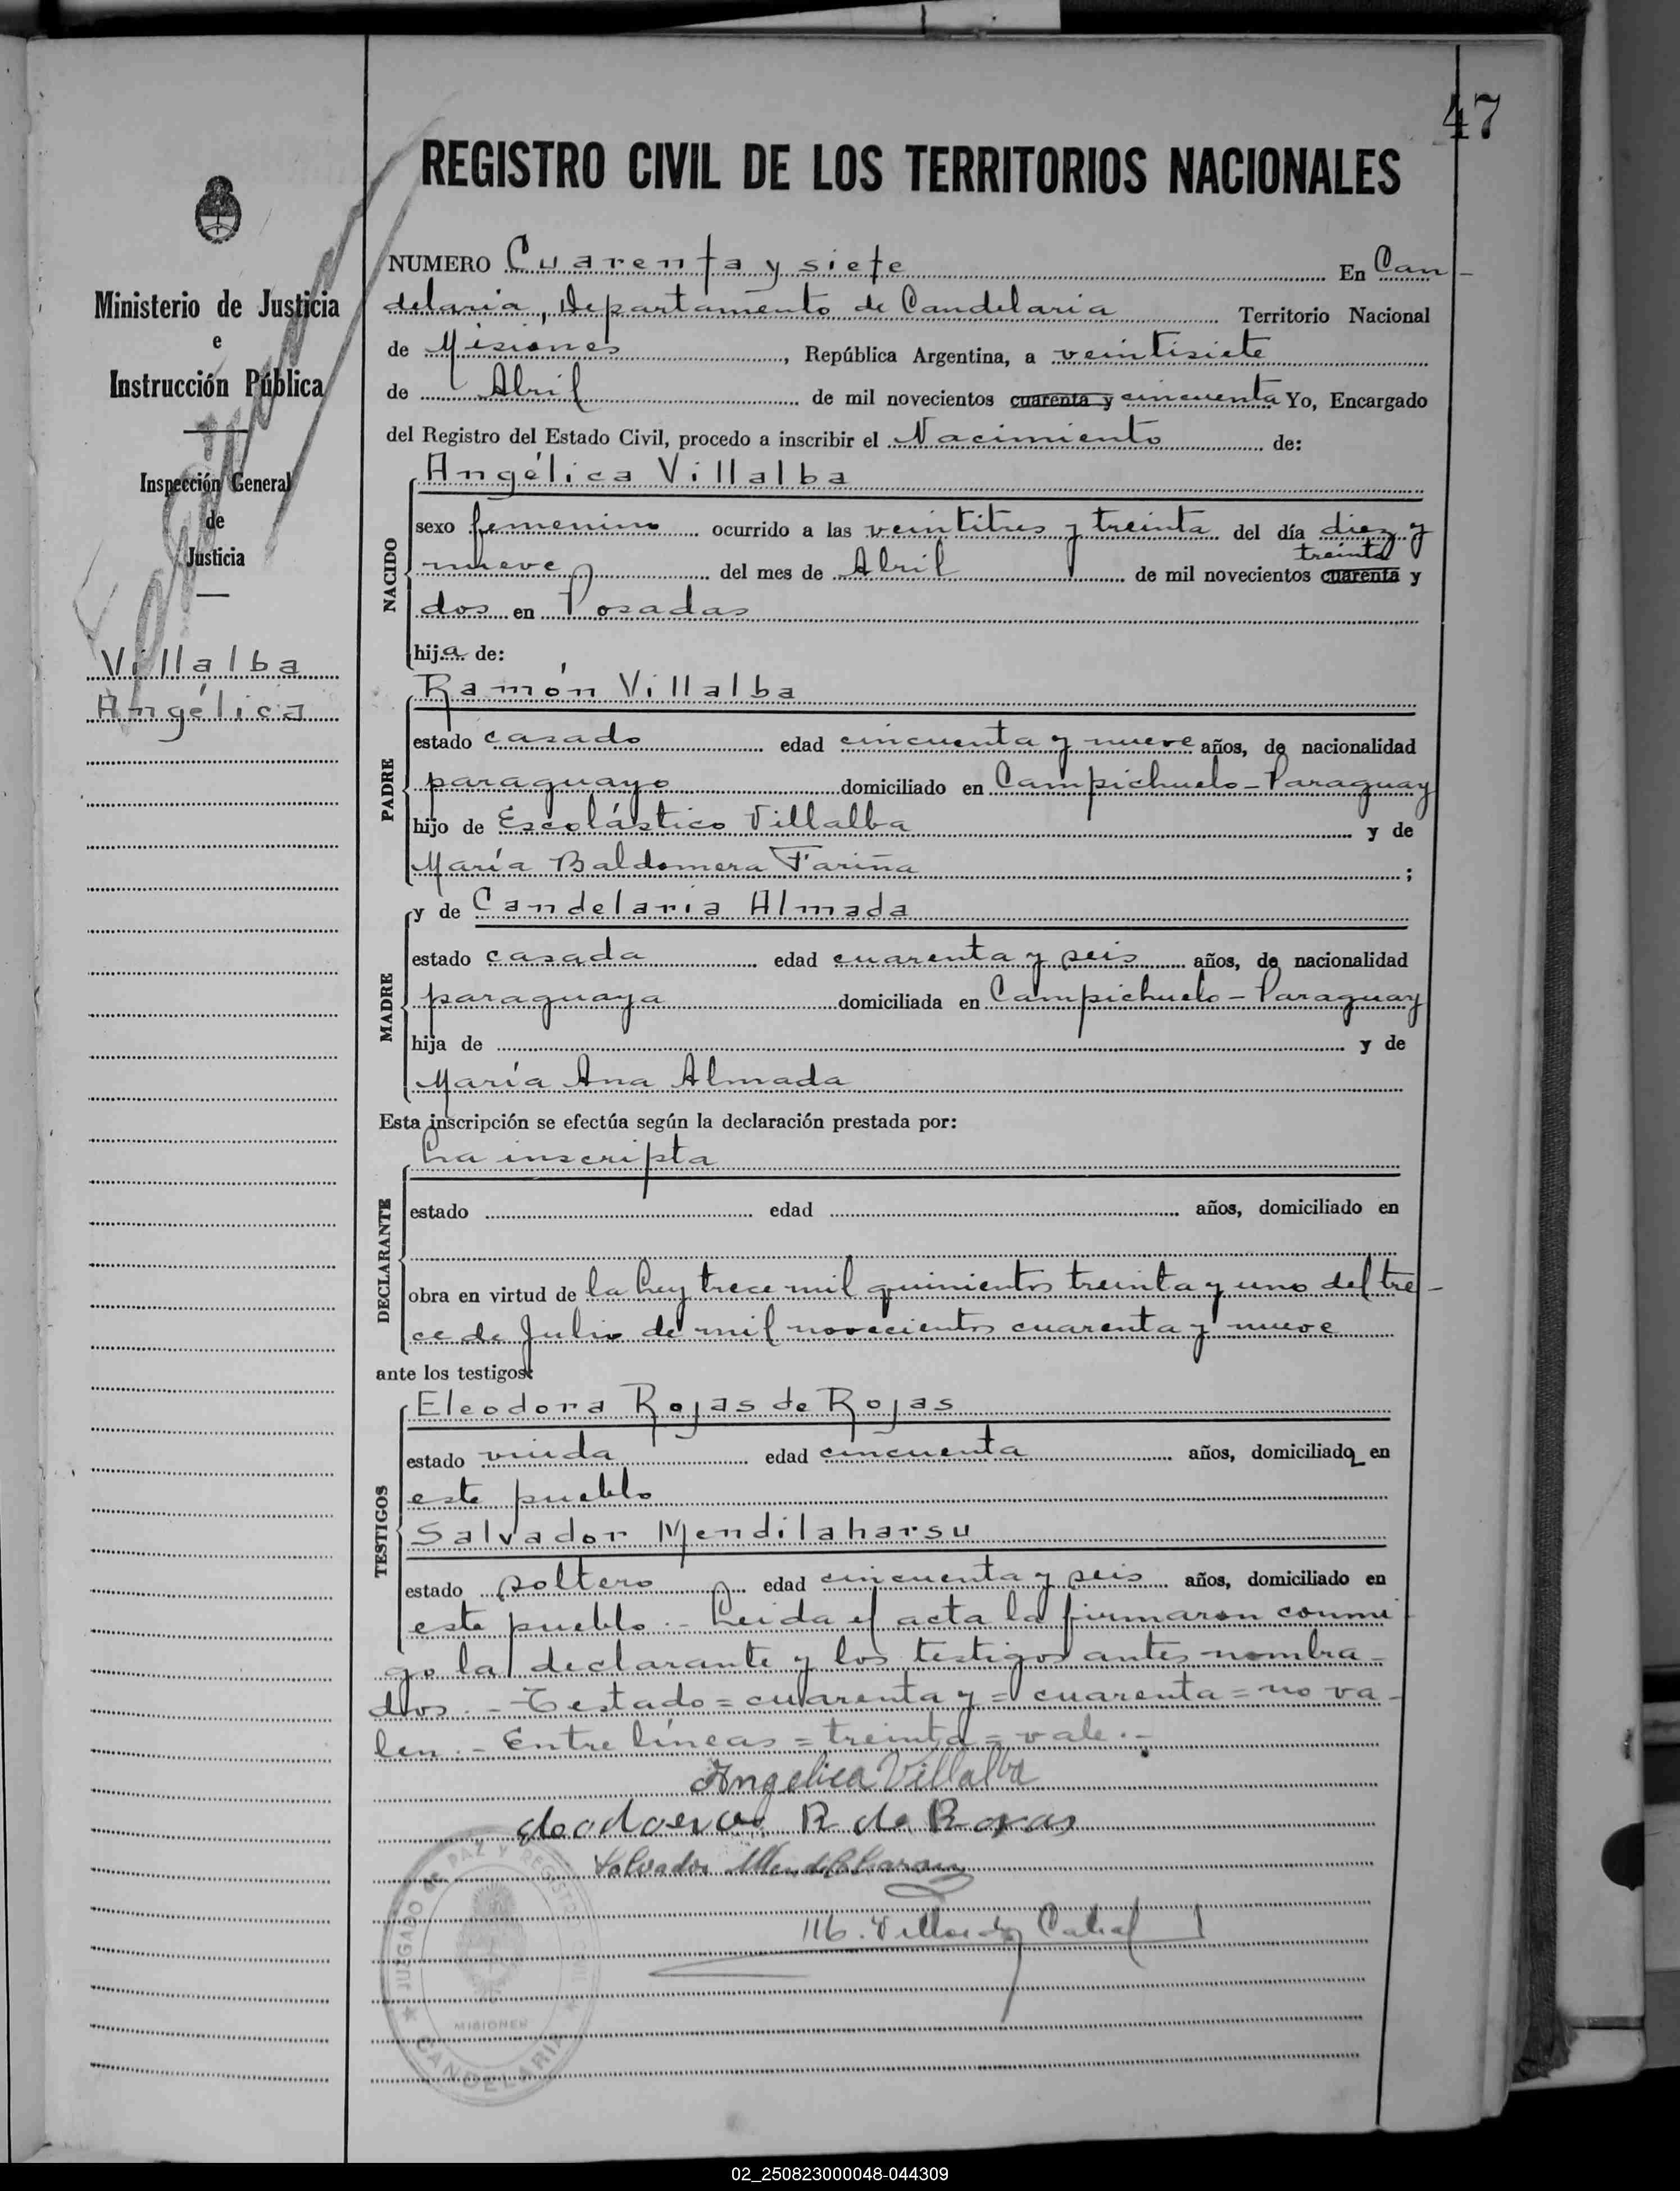 47
REGISTRO CIVIL DE LOS TERRITORIOS NACIONALES
Ministerio de Justicia
e
Instrucción Pública
Inspección General
de
Justicia
Villalba
Angélica
NUMERO Cuarenta y siete En Can-
delaria, Departamento de Candelaria Territorio Nacional
de Misiones, República Argentina, a veintisiete
de Abril de mil novecientos cuarenta y cincuenta Yo, Encargado
del Registro del Estado Civil, procedo a inscribir el Nacimiento de:
NACIDO
Angélica Villalba
sexo femenino ocurrido a las veintitres y treinta del día diez y
treinta
nueve del mes de Abril de mil novecientos cuarenta y
dos en Posadas
hija de:
PADRE
Ramón Villalba
estado casado edad cincuenta y nueve años, de nacionalidad
paraguayo domiciliado en Campichuelo-Paraguay
hijo de Escolástico Villalba y de
María Baldomera Fariña ;
MADRE
y de Candelaria Almada
estado casada edad cuarenta y seis años, de nacionalidad
paraguaya domiciliada en Campichuelo-Paraguay
hija de y de
María Ana Almada
Esta inscripción se efectúa según la declaración prestada por:
DECLARANTE
La inscripta
estado edad años, domiciliado en
obra en virtud de la Ley trece mil quinientos treinta y uno del tre-
ce de Julio de mil novecientos cuarenta y nueve
ante los testigos:
TESTIGOS
Eleodora Rojas de Rojas
estado viuda edad cincuenta años, domiciliada en
este pueblo
Salvador Mendilaharsu
estado soltero edad cincuenta y seis años, domiciliado en
este pueblo.- Leida el acta la firmaron conmi
go la declarante y los testigos antes nombra-
dos.- Testado=cuarenta y=cuarenta=no va-
len.- Entre líneas=treinta=vale.-
Angelica Villalba
R de Roxas
Salvador
Cabral
JUZGADO de PAZ Y REGISTRO CIVIL
MISIONES
CANDELARIA
02_250823000048-044309